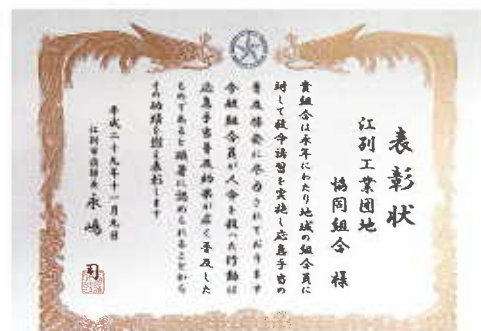 表彰状
江別工業団地
協同組合 様
貴組合は永年にわたり地域の組合員に
対して救命講習を実施し応急手当の
普及啓発に尽力されております
今般組合員が人命を救った行動は
応急手当普及効果が広く普及した
ものであると顕著に認められることから
その功績を讃え表彰します
平成二十九年十一月九日
江別市消防長 永嶋 司